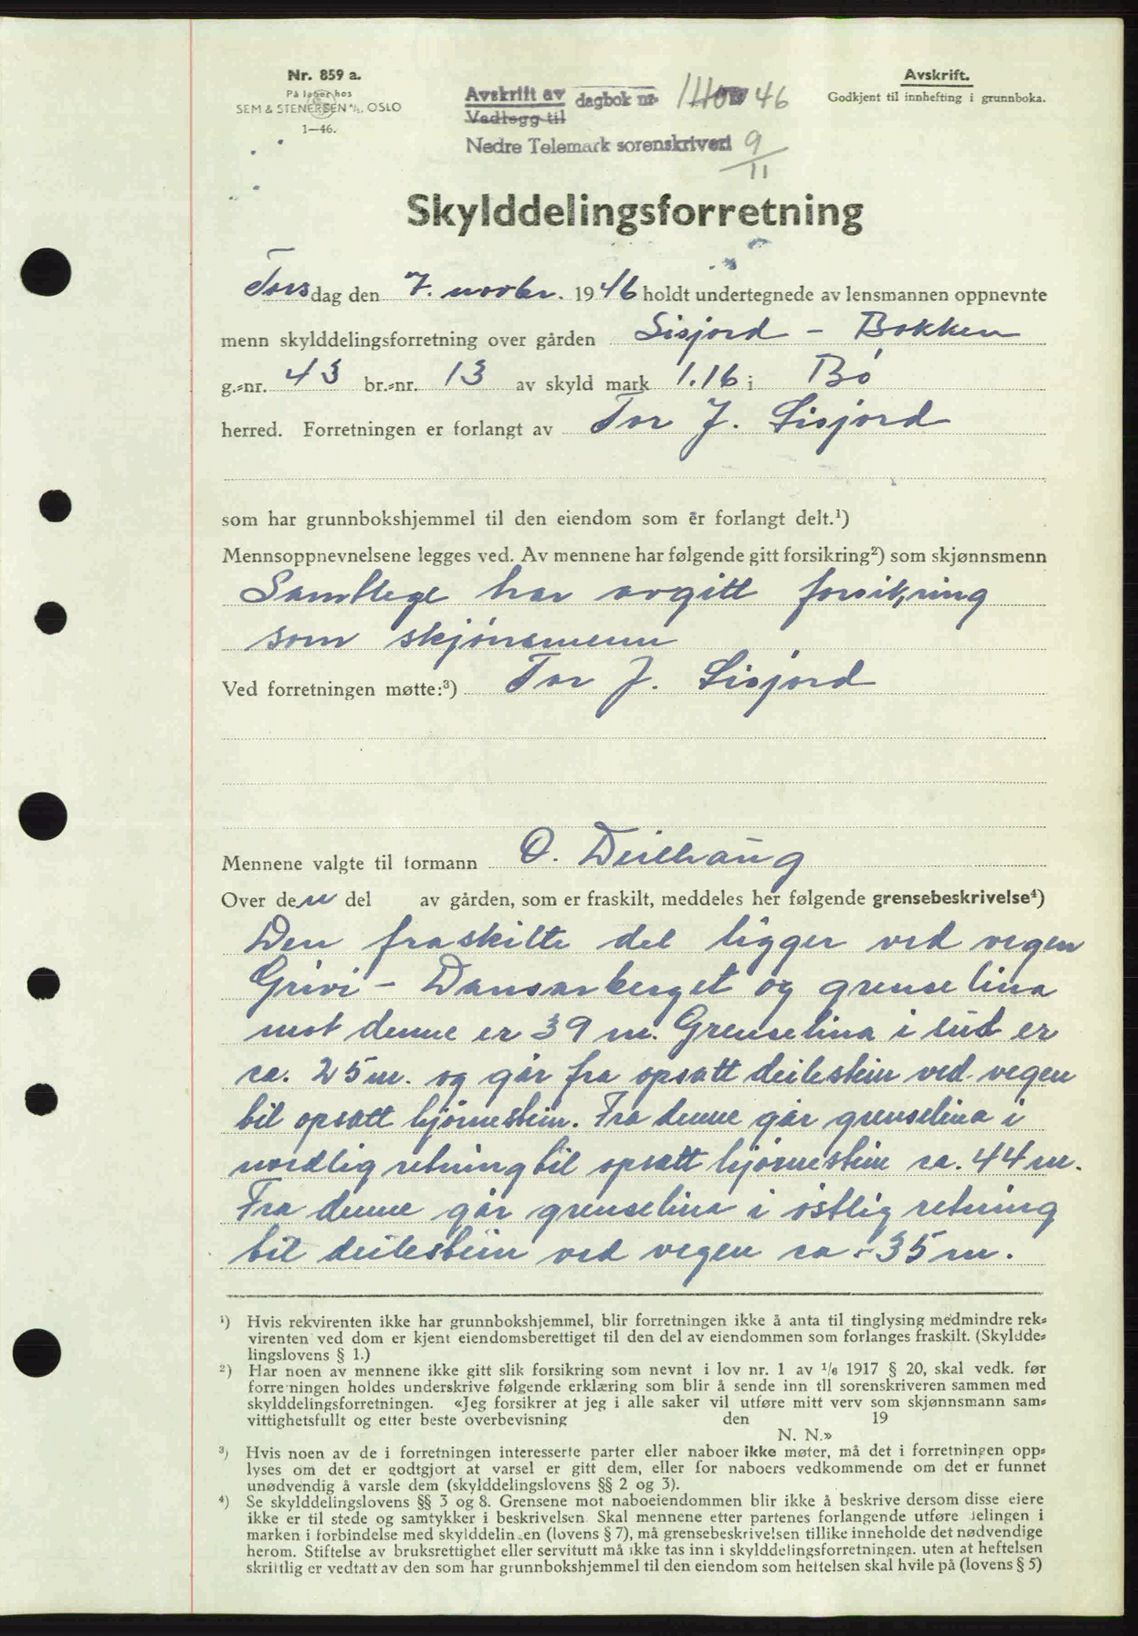 Nr. 859 a.
På lager hos
SEM & STENERSEN A/S, OSLO
1—46.
Avskrift av dagbok nr. 46
Vedlegg til
Nedre Telemark sorenskriveri 9/11
Avskrift.
Godkjent til innhefting i grunnboka.
Skylddelingsforretning
Torsdag den 7. novbr. 1946 holdt undertegnede av lensmannen oppnevnte
menn skylddelingsforretning over gården Sisjord - Bakken
g.=nr. 43 br.=nr. 13 av skyld mark 1.16 i Bø
herred. Forretningen er forlangt av Tor J. Sisjord
som har grunnbokshjemmel til den eiendom som er forlangt delt.¹)
Mennsoppnevnelsene legges ved. Av mennene har følgende gitt forsikring²) som skjønnsmenn
Samtlege har avgitt forsikring
som skjønsmenn
Ved forretningen møtte:³) Tor J. Sisjord
Mennene valgte til formann O.
Over den del av gården, som er fraskilt, meddeles her følgende grensebeskrivelse⁴)
Den fraskilte del ligger ved vegen
Grivi - Dansarberget og grenselina
mot denne er 39 m. Grenselina i sud er
ca. 25 m. og går fra opsatt deilestein ved vegen
til opsatt hjørnestein. Fra denne går grenselina i
nordlig retning til opsatt hjørnestein ca. 44 m.
Fra denne går grenselina i østlig retning
til deilestein ved vegen ca. 35 m.
¹) Hvis rekvirenten ikke har grunnbokshjemmel, blir forretningen ikke å anta til tinglysing medmindre rek=
virenten ved dom er kjent eiendomsberettiget til den del av eiendommen som forlanges fraskilt. (Skyldde=
lingslovens § 1.)
²) Har noen av mennene ikke gitt slik forsikring som nevnt i lov nr. 1 av 1/6 1917 § 20, skal vedk. før
forretningen holdes underskrive følgende erklæring som blir å sende inn til sorenskriveren sammen med
skylddelingsforretningen. «Jeg forsikrer at jeg i alle saker vil utføre mitt verv som skjønnsmann sam=
vittighetsfullt og etter beste overbevisning den 19
N. N.»
³) Hvis noen av de i forretningen interesserte parter eller naboer ikke møter, må det i forretningen opp=
lyses om det er godtgjort at varsel er gitt dem, eller for naboers vedkommende om det er funnet
unødvendig å varsle dem (skylddelingslovens §§ 2 og 3).
⁴) Se skylddelingslovens §§ 3 og 8. Grensene mot naboeiendommen blir ikke å beskrive dersom disse eiere
ikke er til stede og samtykker i beskrivelsen. Skal mennene etter partenes forlangende utføre delingen i
marken i forbindelse med skylddelingen (lovens § 7), må grensebeskrivelsen tillike inneholde det nødvendige
herom. Stiftelse av bruksrettighet eller servitutt må ikke tas inn i skylddelingsforretningen. uten at heftelsen
skriftlig er vedtatt av den som har grunnbokshjemmel til den eiendom som heftelsen skal hvile på (lovens § 5)